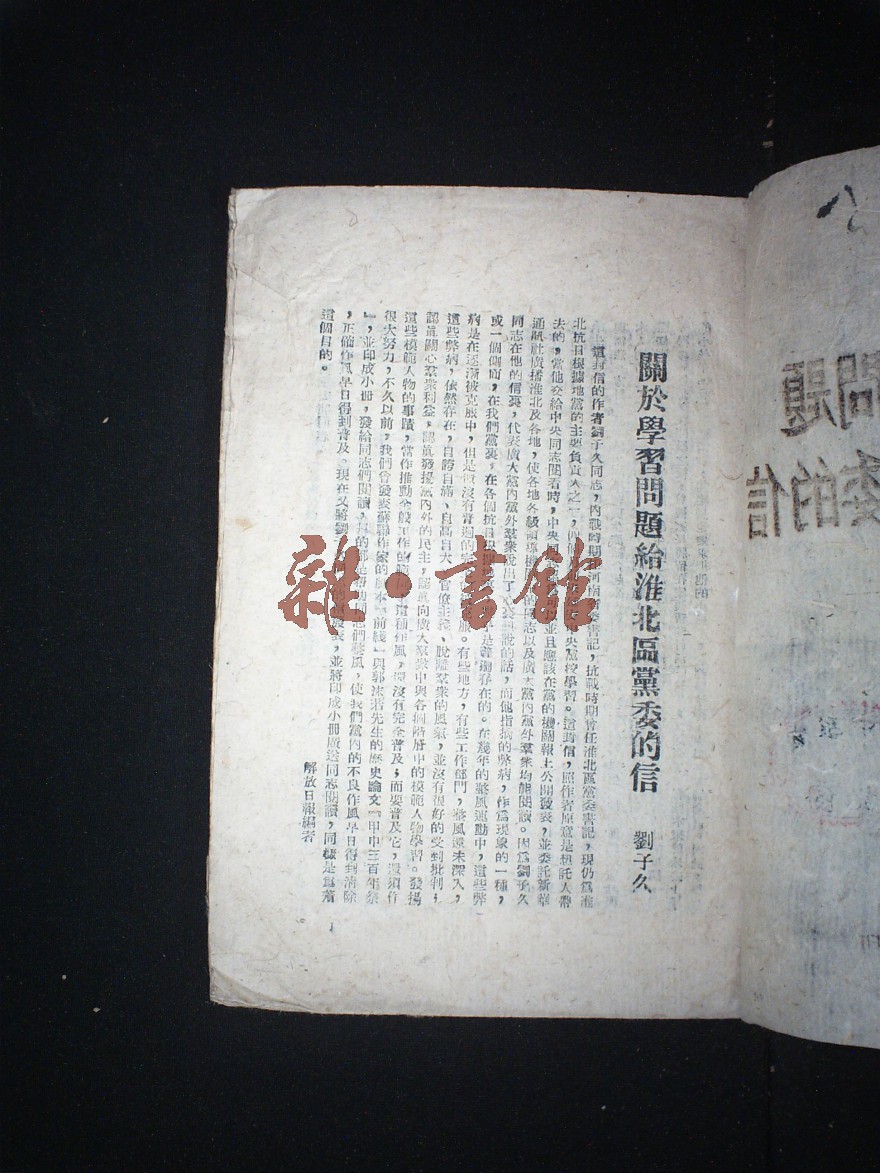 關於學習問題給淮北區黨委的信
劉子久
這封信的作者劉子久同志,內戰時期 河南省委書記,抗戰時期曾任淮北區黨委書記,現仍爲淮
北抗日根據地黨的主要負責人之一, 中央黨校學習。這封信,照作者原意是想託人帶
去的,當他交給中央同志閱看時,中央同 並且應該在黨的機關報上公開發表,並委託新華
通訊社廣播淮北及各地,使各地各級領導機 的同志以及廣大黨內黨外羣衆均能閱讀。因爲劉子久
同志在他的信裏,代表廣大黨內黨外羣衆說出了 說的話,而他指摘的弊病,作爲現象的一種,
或一個側面,在我們黨裏,在各個抗日 是普遍存在的。在幾年的整風運動中,這些弊
病是在逐漸被克服中,但是還沒有普遍的 服。有些地方,有些工作部門,整風還未深入,
這些弊病,依然存在,自誇自滿、自高自大、官僚主義、脫離羣衆的風氣,並沒有很好的受到批判;
認眞關心羣衆利益,認眞發揚黨內外的民主,認眞向廣大羣衆中與各個階層中的模範人物學習。發揚
這些模範人物的事蹟,當作推動全般工作的 這種作風,還沒有完全普及;而要普及它,還須作
很大努力,不久以前,我們曾發表蘇聯作家的劇本『前綫』與郭沫若先生的歷史論文『甲申三百年祭
』,並印成小冊,發給同志們閱讀, 的都是 同志們整風,使我們黨內的不良作風早日得到消除
,正確作風早日得到普及。現在又將劉 發表,並將印成小冊廣送同志閱讀,同樣是爲着
這個目的。
解放日報編者
1
問題
委的信
雜·書館